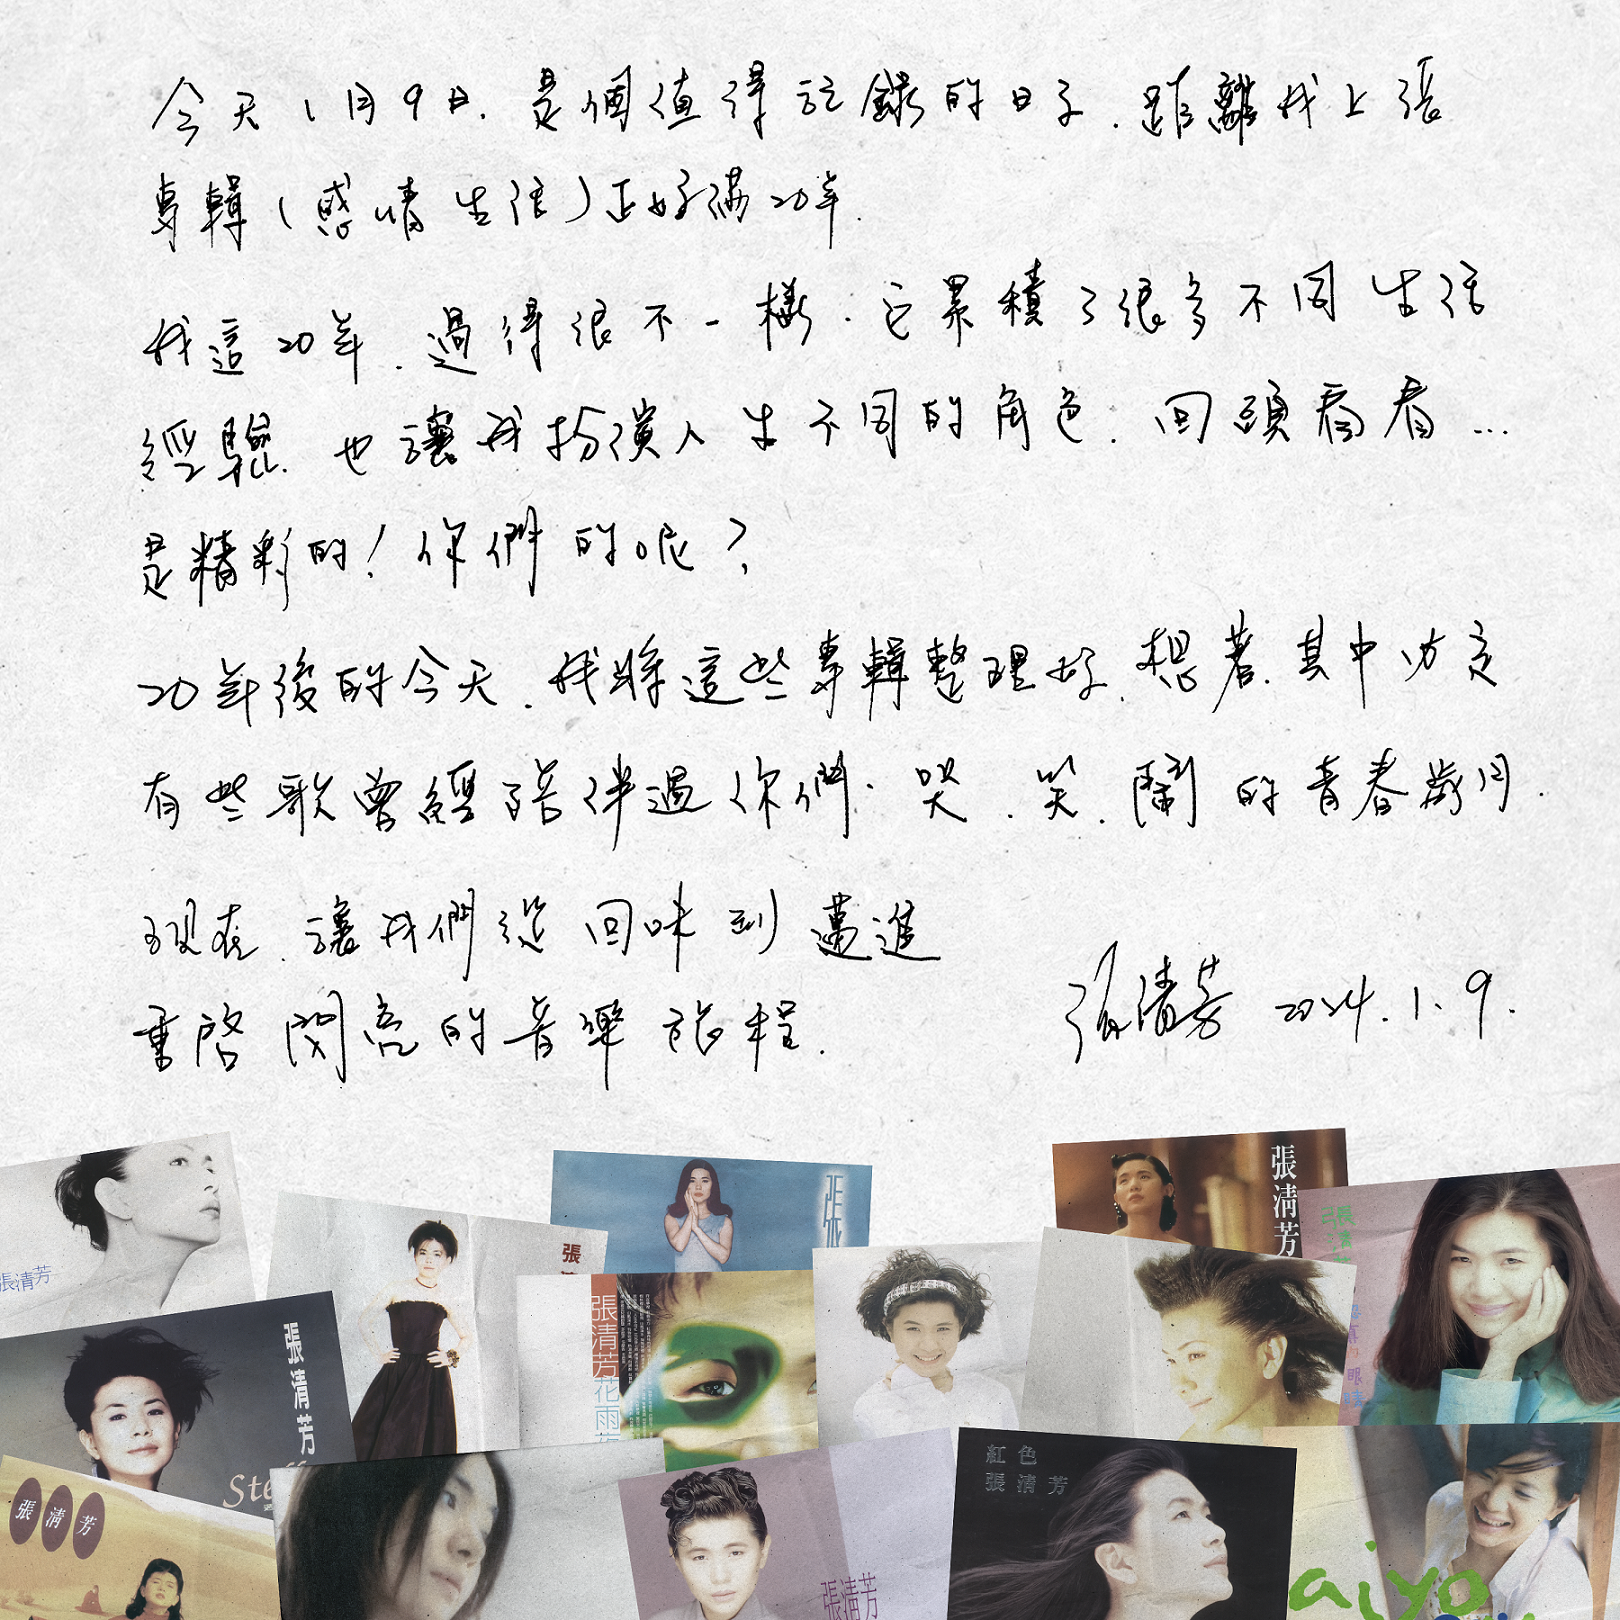 今天1月9日.是個值得記錄的日子.距離我上張
專輯(感情生活)正好滿20年.
我這20年.過得很不一樣.它累積了很多不同生活
經驗.也讓我扮演人生不同的角色.回頭看看...
是精彩的!你們的呢?
20年後的今天.我將這些專輯整理好.想著.其中肯定
有些歌曾經陪伴過你們.哭.笑.鬧的青春歲月.
現在.讓我們從回味到邁進
重啓閃亮的音樂旅程.
張清芳 2024.1.9.
張清芳
張
張
張清芳
張清芳
張清芳
張清芳花雨
眼睛
Ste
張清芳
張清芳
紅色
張清芳
aiyo